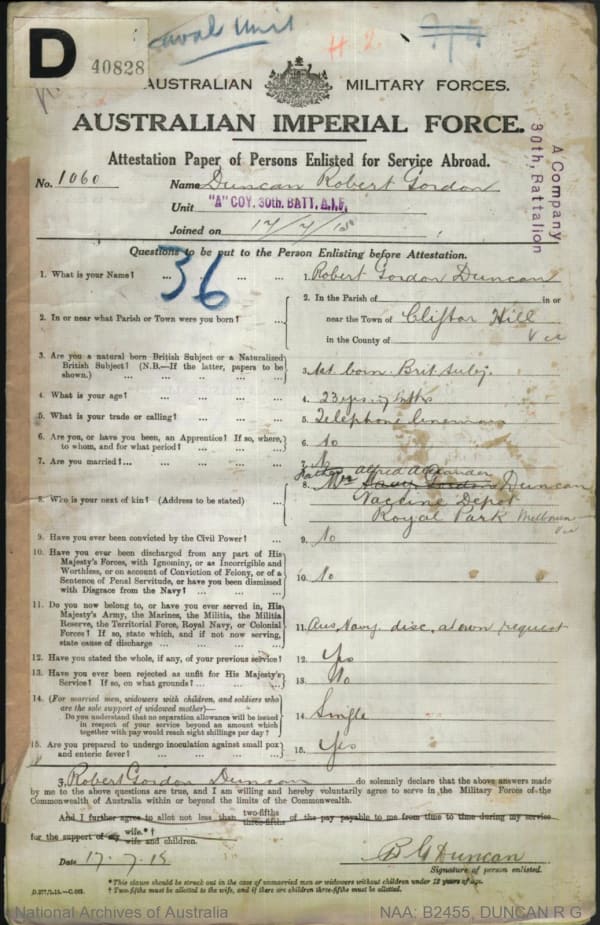 D
40828
Naval Unit
H 2
AUSTRALIAN MILITARY FORCES.
AUSTRALIAN IMPERIAL FORCE.
Attestation Paper of Persons Enlisted for Service Abroad.
A Company
30th, Battalion
No. 1060 Name Duncan Robert Gordon
Unit "A" COY. 30th. BATT. A.I.F.
Joined on 17/7/15
Questions to be put to the Person Enlisting before Attestation.
36
1. What is your Name? ... ... ... ... 1. Robert Gordon Duncan
2. In or near what Parish or Town were you born? ... ... 2. In the Parish of in or
near the Town of Clifton Hill
in the County of Vic
3. Are you a natural born British Subject or a Naturalized
British Subject? (N.B.—If the latter, papers to be
shown.) ... ... ... ... 3. Nat born Brit subj.
4. What is your age? ... ... ... ... 4. 23 yrs. 7 mths
5. What is your trade or calling? ... ... ... 5. Telephone lineman
6. Are you, or have you been, an Apprentice? If so, where,
to whom, and for what period? ... ... ... 6. No
7. Are you married? ... ... ... ... 7. No
Father Alfred Alexander
8. Who is your next of kin? (Address to be stated) ... 8. Mr Duncan
Vaccine Depot
Royal Park Melbourne
Vic
9. Have you ever been convicted by the Civil Power? ... 9. No
10. Have you ever been discharged from any part of His
Majesty's Forces, with Ignominy, or as Incorrigible and
Worthless, or on account of Conviction of Felony, or of a
Sentence of Penal Servitude, or have you been dismissed
with Disgrace from the Navy? ... ... ... 10. No
11. Do you now belong to, or have you ever served in, His
Majesty's Army, the Marines, the Militia, the Militia
Reserve, the Territorial Force, Royal Navy, or Colonial
Forces? If so, state which, and if not now serving,
state cause of discharge ... ... ... 11. Aus Navy. disc. at own request
12. Have you stated the whole, if any, of your previous service? 12. Yes
13. Have you ever been rejected as unfit for His Majesty's
Service? If so, on what grounds? ... ... ... 13. No
14. (For married men, widowers with children, and soldiers who
are the sole support of widowed mother)—
Do you understand that no separation allowance will be issued
in respect of your service beyond an amount which
together with pay would reach eight shillings per day? 14. Single
15. Are you prepared to undergo inoculation against small pox
and enteric fever? ... ... ... ... 15. Yes
I, Robert Gordon Duncan do solemnly declare that the above answers made
by me to the above questions are true, and I am willing and hereby voluntarily agree to serve in the Military Forces of the
Commonwealth of Australia within or beyond the limits of the Commonwealth.
And I further agree to allot not less than two-fifths three-fifths of the pay payable to me from time to time during my service
for the support of my wife.* † wife and children.
Date 17.7.15 R G Duncan
Signature of person enlisted.
* This clause should be struck out in the case of unmarried men or widowers without children under 18 years of age.
† Two-fifths must be allotted to the wife, and if there are children three-fifths must be allotted.
National Archives of Australia NAA: B2455, DUNCAN R G